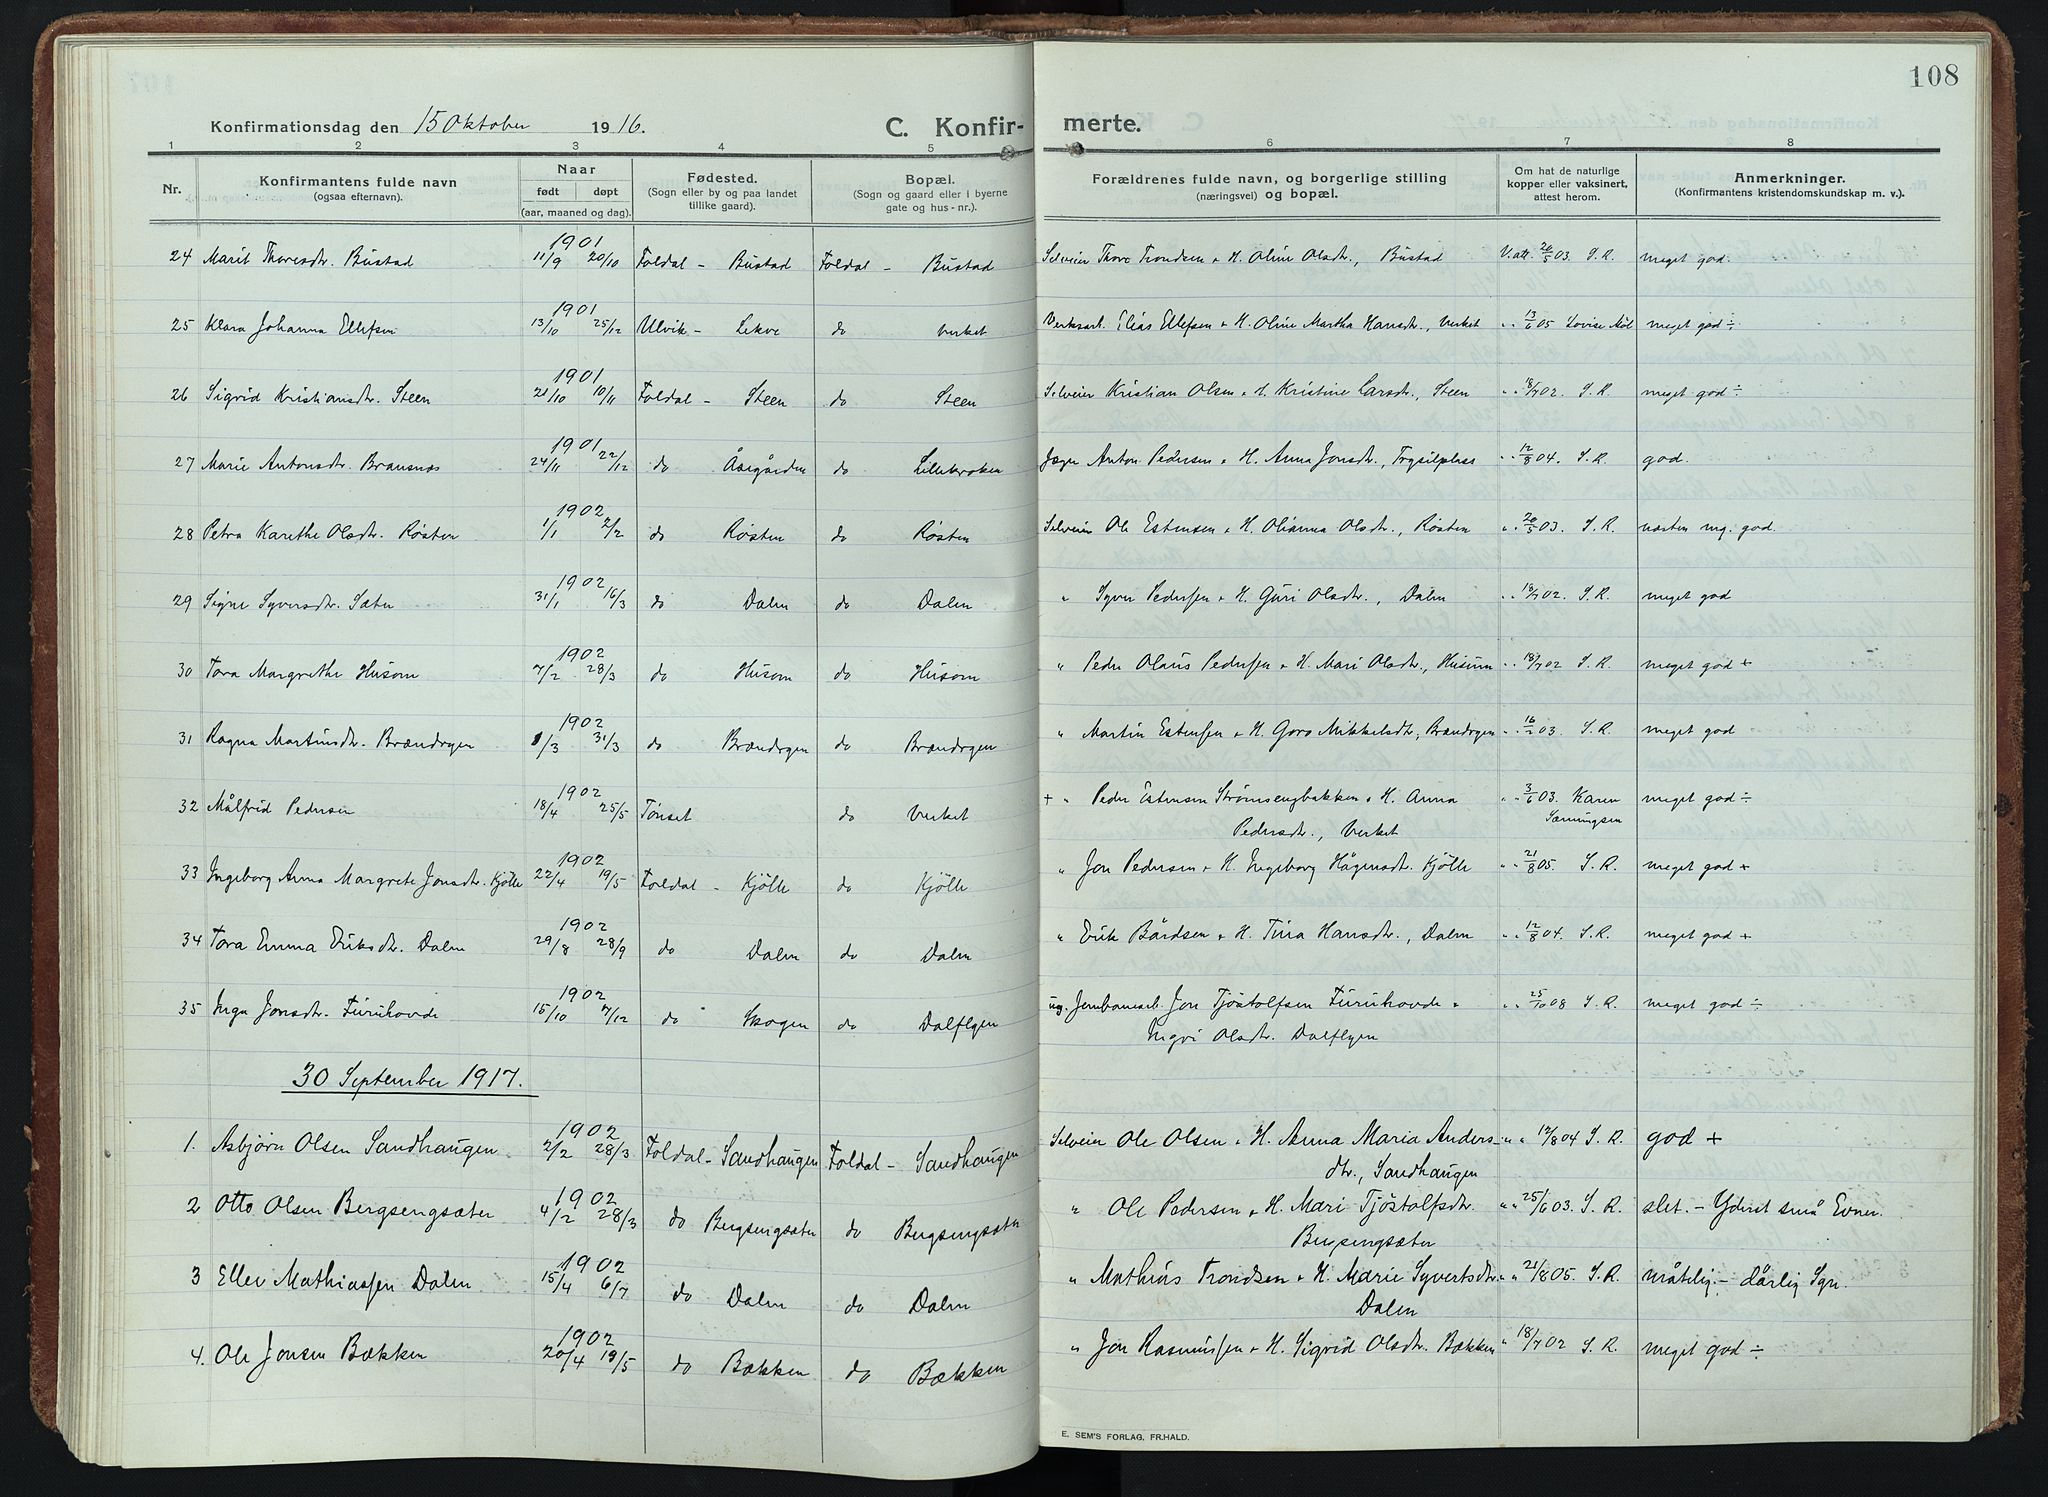 108
Konfirmationsdag den 15 Oktober 1916.
C. Konfir-
merte.
1 2 3 4 5 6 7 8
Nr.
Konfirmantens fulde navn
(ogsaa efternavn).
Naar
født døpt
(aar, maaned og dag).
Fødested.
(Sogn eller by og paa landet
tillike gaard).
Bopæl.
(Sogn og gaard eller i byerne
gate og hus-nr.).
Forældrenes fulde navn, og borgerlige stilling
(næringsvei) og bopæl.
Om hat de naturlige
kopper eller vaksinert,
attest herom.
Anmerkninger.
(Konfirmantens kristendomskundskap m. v.).
1901
24 Marit Thoresdtr. Bustad 11/9 20/10 Foldal - Bustad Foldal - Bustad Selveier Thore Trondsen + H. Oline Olsdtr., Bustad V. att. 20/5 03. S. R. meget god.
1901
25 Klara Johanna Ellefsen 13/10 25/12 Ulvik - Lekve do Verket Verksarb. Elias Ellefsen + H. Oline Martha Hansdtr., Verket " " 13/6 05 Lovise Mol meget god ÷
1901
26 Sigrid Kristiansdtr. Steen 21/10 10/11 Foldal - Steen do Steen Selveier Kristian Olsen + H. Kristine Larsdtr., Steen " " 18/7 02. S. R. meget god ÷
1901
27 Marie Antonsdtr. Bransnæs 24/11 22/12 do Åsegården do Lillekroken Jæger Anton Pedersen + H. Anna Jonsdtr., Trysilplass " " 12/8 04. S. R. god.
1902
28 Petra Karethe Olsdtr. Røsten 1/1 2/2 do Røsten do Røsten Selveier Ole Estensen + H. Olianna Olsdtr., Røsten " " 20/5 03. S. R. næsten mg. god.
1902
29 Signe Syversdtr. Sæter 31/1 16/3 do Dalen do Dalen " Syver Pedersen + H. Guri Olsdtr., Dalen " " 18/7 02. S. R. meget god
1902
30 Tora Margrethe Husom 7/2 28/3 do Husom do Husom " Peder Olaus Pedersen + H. Mari Olsdtr., Husum " " 18/7 02 S. R. meget god +
1902
31 Ragna Martinsdtr. Brændryen 1/3 31/3 do Brændryen do Brændryen " Martin Estensen + H. Goro Mikkelsdtr., Brændryen " " 16/2 03. S. R. meget god
1902
32 Målfrid Pedersen 18/4 25/5 Tønset do Verket + " Peder Estensen Strømsengbakken + H. Anna " " 3/6 03. Karen meget god ÷
Pedersdtr., Verket Sæmingsen
1902
33 Ingeborg Anna Margrete Jonsdtr. Kjølle 22/4 19/5 Foldal - Kjølle do Kjølle " Jon Pedersen + H. Ingeborg Hågensdtr. Kjølle " " 21/8 05. S. R. meget god +
1902
34 Tora Emma Eriksdtr. Dalen 29/8 28/9 do Dalen do Dalen " Erik Bårdsen + H. Tina Hansdtr., Dalen " " 12/8 04. S. R. meget god +
1902
35 Inga Jonsdtr. Furuhovde 15/10 7/12 do Skogen do Dalflyen ug. Jernbanearb. Jon Tjøstolfsen Furuhovde + " " 25/10 08 S. R. meget god ÷
Ingri Olsdtr. Dalflyen
30 September 1917.
1902
1. Asbjørn Olsen Sandhaugen 2/2 28/3 Foldal - Sandhaugen Foldal - Sandhaugen Selveier Ole Olsen + H. Anna Maria Anders- " " 12/8 04 S. R. god +
dtr., Sandhaugen
1902
2 Otto Olsen Bergsengsæter 4/2 28/3 do Bergsengsæter do Bergsengsæter " Ole Pedersen + H. Mari Tjøstolfsdtr. " " 25/6 03. S. R. slet. - Yderst små Evner.
Bergsengsæter
1902
3 Ellev Mathiassen Dalen 15/4 6/7 do Dalen do Dalen " Mathias Trondsen + H. Marie Syvertsdtr. " " 21/8 05. S. R. måtelig. - dårlig Syn.
Dalen
1902
4. Ole Jonsen Bækken 20/4 19/5 do Bækken do Bækken " Jon Rasmussen + H. Sigrid Olsdtr. Bækken " 18/7 02 S. R. meget god ÷
E. SEM'S FORLAG, FR.HALD.